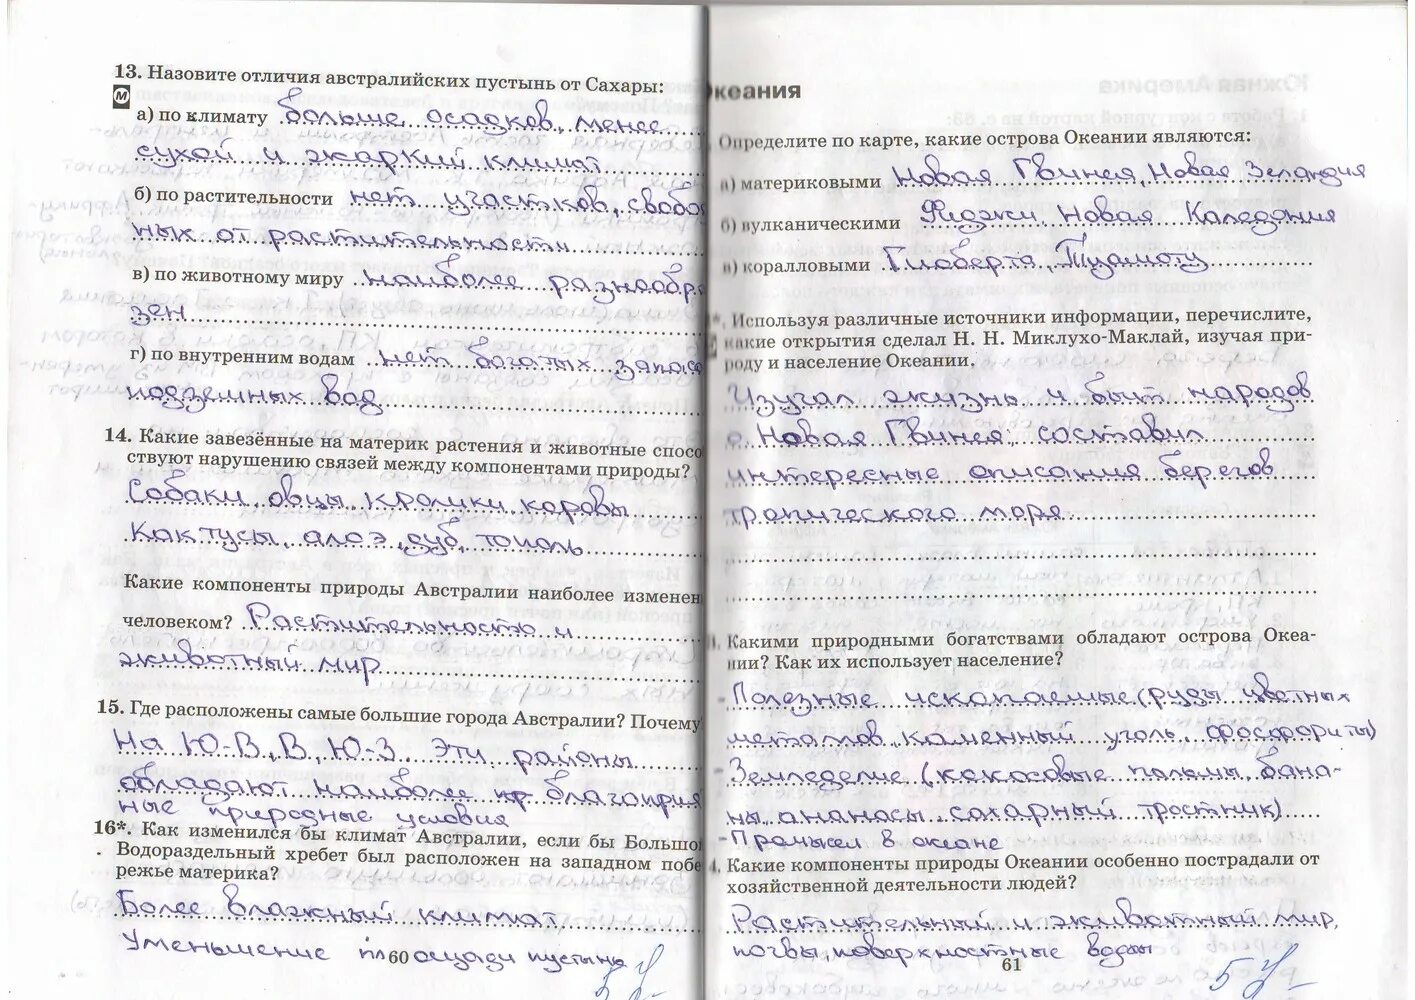 13. Назовите отличия австралийских пустынь от Сахары:
М
а) по климату больше осадков, менее
сухой и жаркий климат
б) по растительности нет участков, свобо
ных от растительности.
в) по животному миру наиболее разнообра
зен
г) по внутренним водам нет богатых запасо
подземных вод
14. Какие завезённые на материк растения и животные спосо
ствуют нарушению связей между компонентами природы?
Собаки, овцы, кролики, коровы
Кактусы, алоэ, дуб, тополь
Какие компоненты природы Австралии наиболее изменен
человеком? Растительность и
животный мир
15. Где расположены самые большие города Австралии? Почему
На Ю-В, В, Ю-З. Эти районы
обладают наиболее благоприя
ные природные условия
16*. Как изменился бы климат Австралии, если бы Большо
Водораздельный хребет был расположен на западном побе
режье материка?
Более влажный климат
Уменьшение площади пустынь
60
Океания
Определите по карте, какие острова Океании являются:
а) материковыми Новая Гвинея, Новая Зеландия
б) вулканическими Фиджи, Новая Каледония
в) коралловыми Гилберта, Туамоту
*. Используя различные источники информации, перечислите,
какие открытия сделал Н. Н. Миклухо-Маклай, изучая при-
роду и население Океании.
Изучал жизнь и быт народов
о. Новая Гвинея, составил
интересные описания берегов
тропического моря
Какими природными богатствами обладают острова Океа-
нии? Как их использует население?
- Полезные ископаемые (руды цветных
металлов, каменный уголь, фосфориты)
- Земледелие (кокосовые пальмы, бана-
ны, ананасы, сахарный тростник)
- Промысел в океане
4. Какие компоненты природы Океании особенно пострадали от
хозяйственной деятельности людей?
Растительный и животный мир,
почвы, поверхностные воды
61